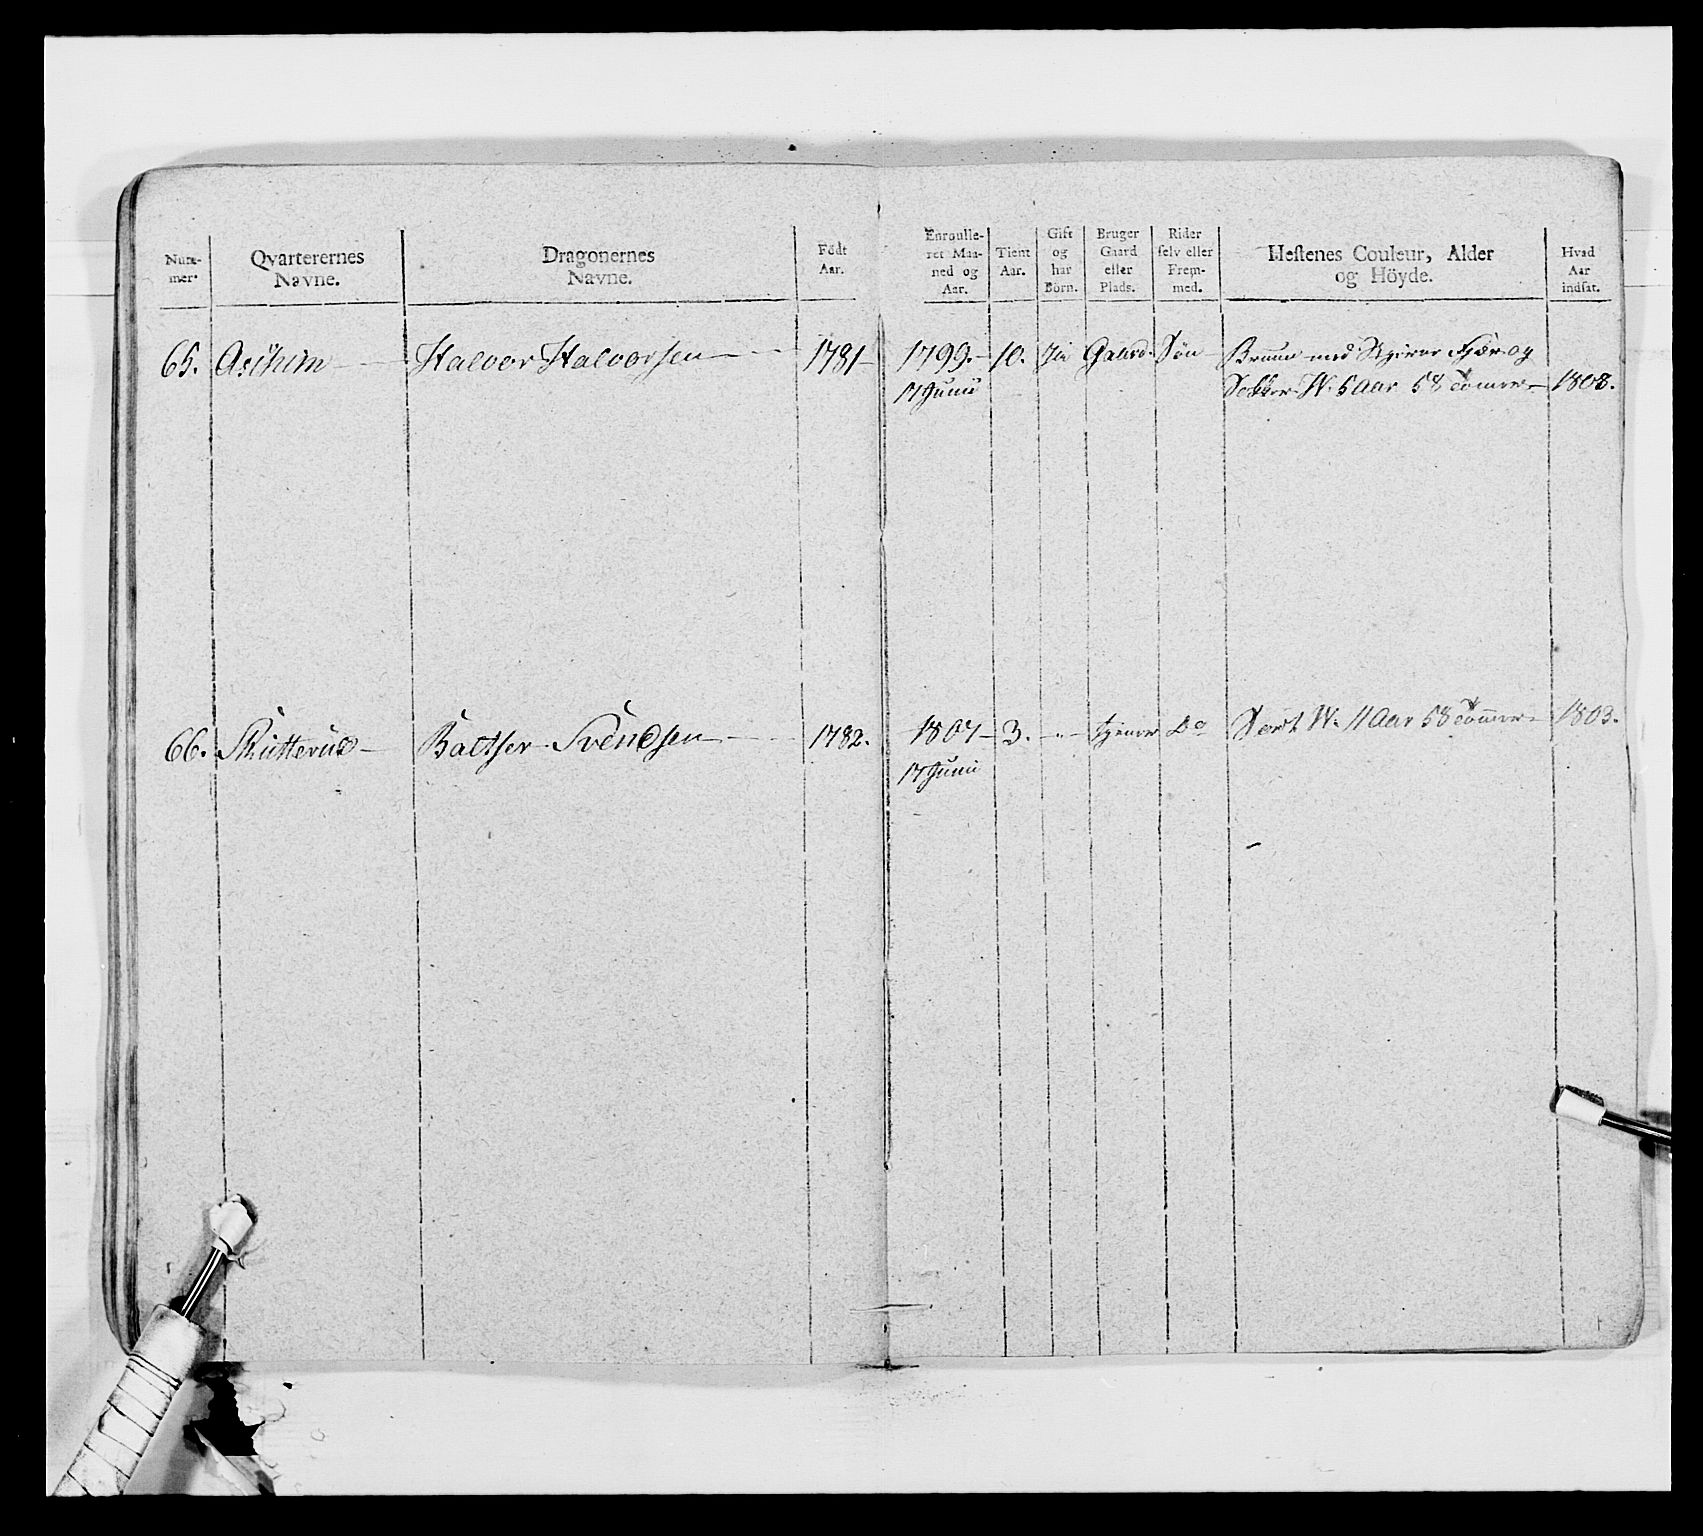 Num-
mer.
Qvarterernes
Navne.
Dragonernes
Navne.
Födt
Aar.
Enroulle-
ret Maa-
ned og
Aar.
Tient
Aar.
Gift
og
har
Börn.
Bruger
Gaard
eller
Plads.
Rider
selv eller
Frem-
med.
Hestenes Couleur, Alder
og Höyde.
Hvad
Aar
indsat.
65. Askim — Halvor Halvorsen — 1781 — 1799. — 10. Ja Gaard. Søn — Bruun med Stjerne og
17 Junii Sokker W. 5 Aar 58 Tomer — 1808.
66. Skutterud — Baltser Svendsen — 1782. 1807 — 3. — " — tjener Do Sort W. 11 Aar 58 Tommer — 1803.
17 Junii